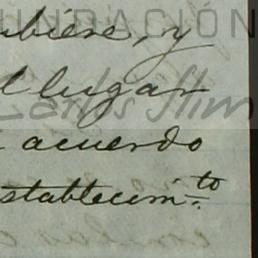 FUNDACIÓN
ubiese, y
el lugar
Carlos Slim
acuerdo
stablecim.to